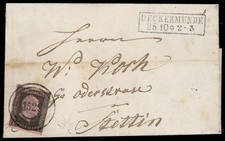 UECKERMÜNDE
25 10 * 2-3
Herrn
Wd. Koch
Gr oderstrasse
Stettin
1524